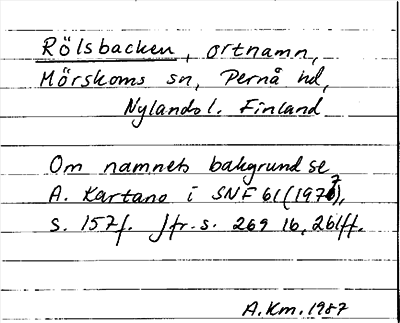 Rölsbacken, ortnamn,
Mörskoms sn, Pernå hd,
Nylands l. Finland
Om namnets bakgrund se
A. Kartano i SNF 61 (1977),
s. 157f. Jfr. s. 269 16, 261ff.
A.Km. 1987